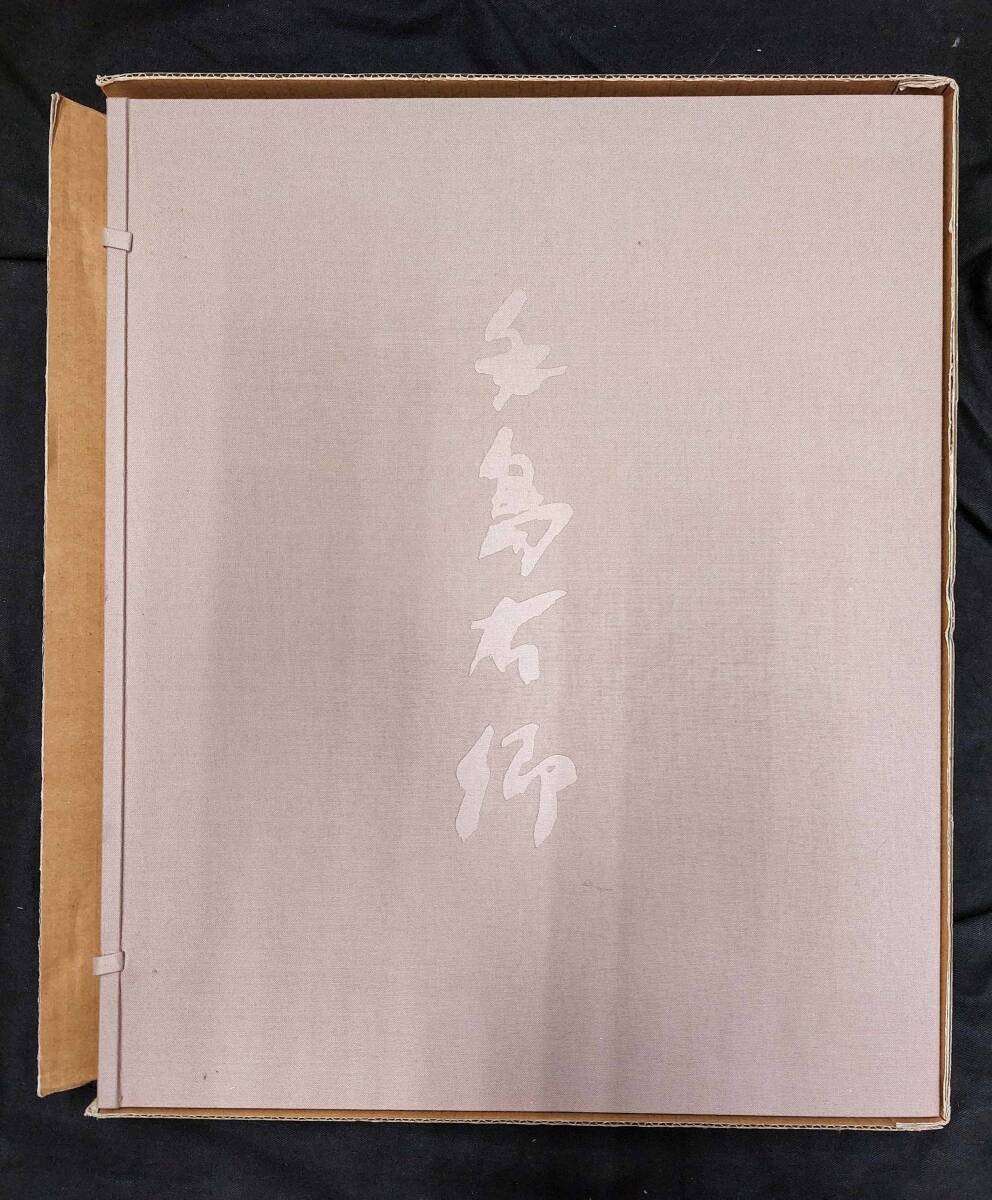 手島右卿